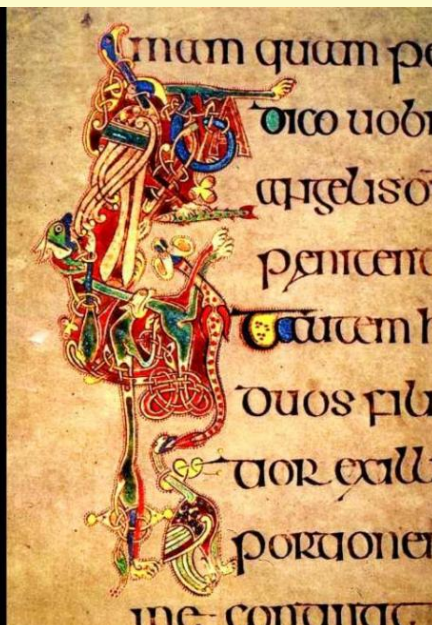 mam quam pe
dico uobi
angelis d
penitent
autem h
duos fili
tior ex ill
portione
me conting